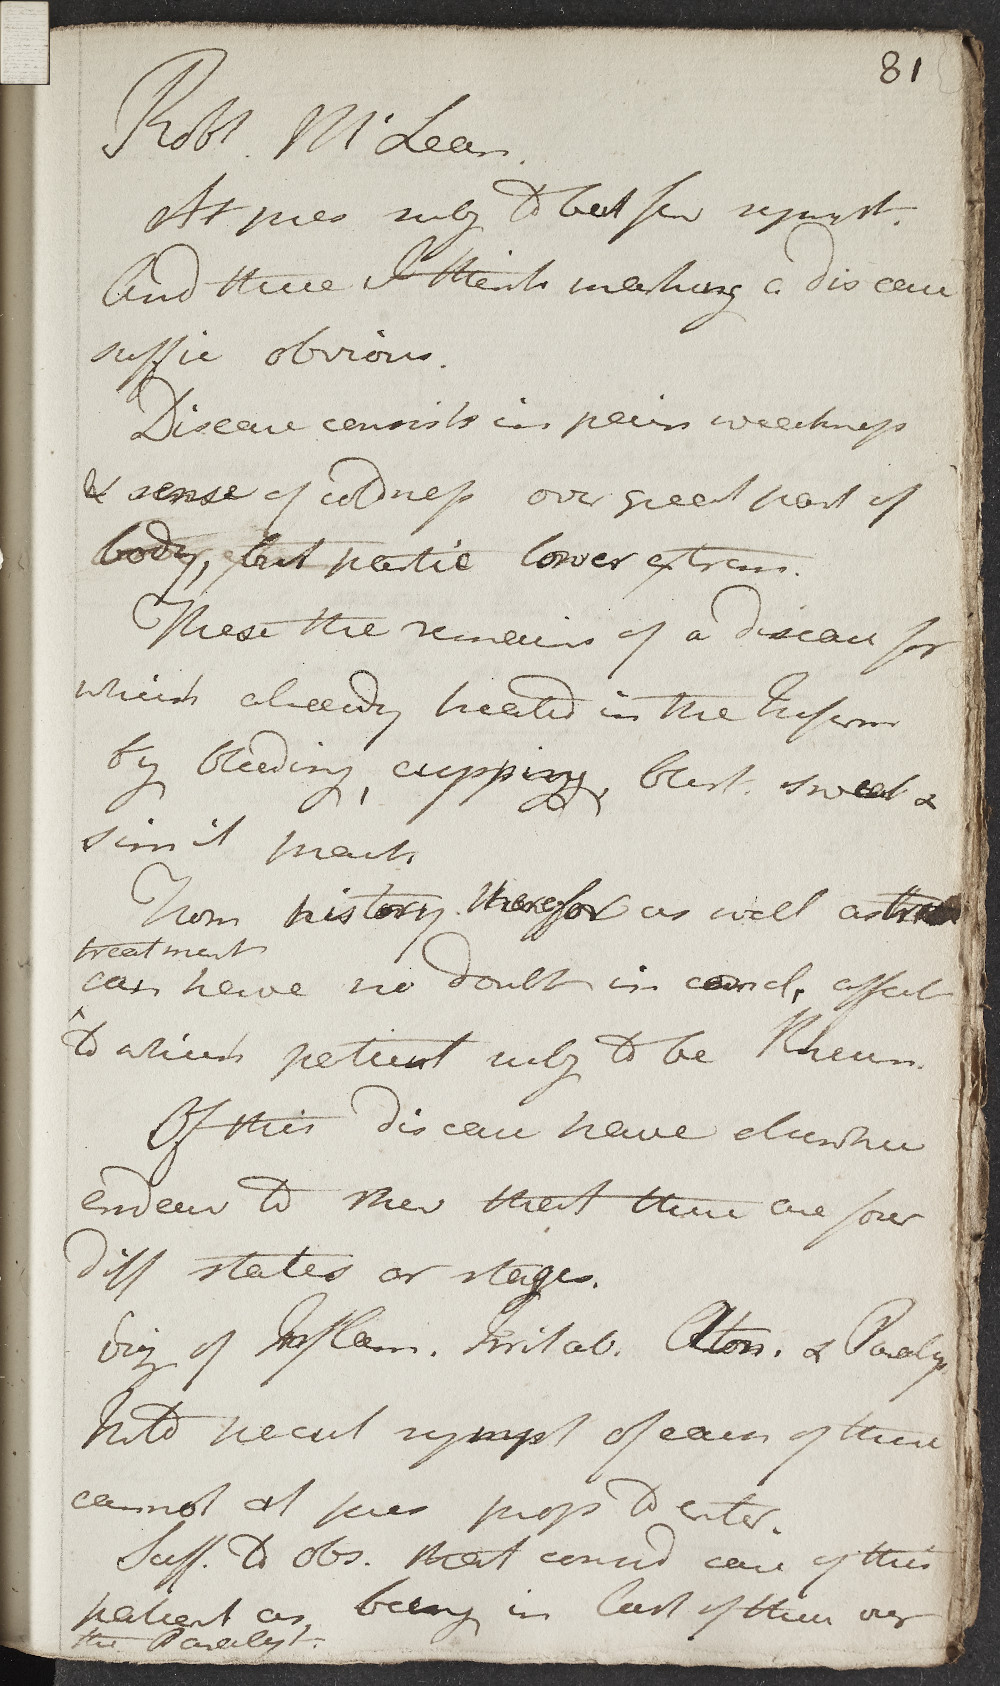 81
Robt. McLean.
At pres subj to but few sympt.
And these I think marking a disease
suffic obvious.
Disease consists in pain weakness
& sense of coldness over great part of
body, but partic lower extrem.
These the remains of a disease for
which already treated in the Infirm
by bleeding, cupping, blist. sweat &
simil pract.
From history therefor as well as
treatment
can have no doubt in concl. affect
to which patient subj to be Rheum.
Of this disease have elsewher
endeav to shew that there are four
diff states or stages.
viz of Inflam. Irritab. Aton. & Paralys.
Into pecul sympt of each of these
cannot at pres prop to enter.
Suff. to obs. that consid case of this
patient as being in last of them viz
the Paralyt.